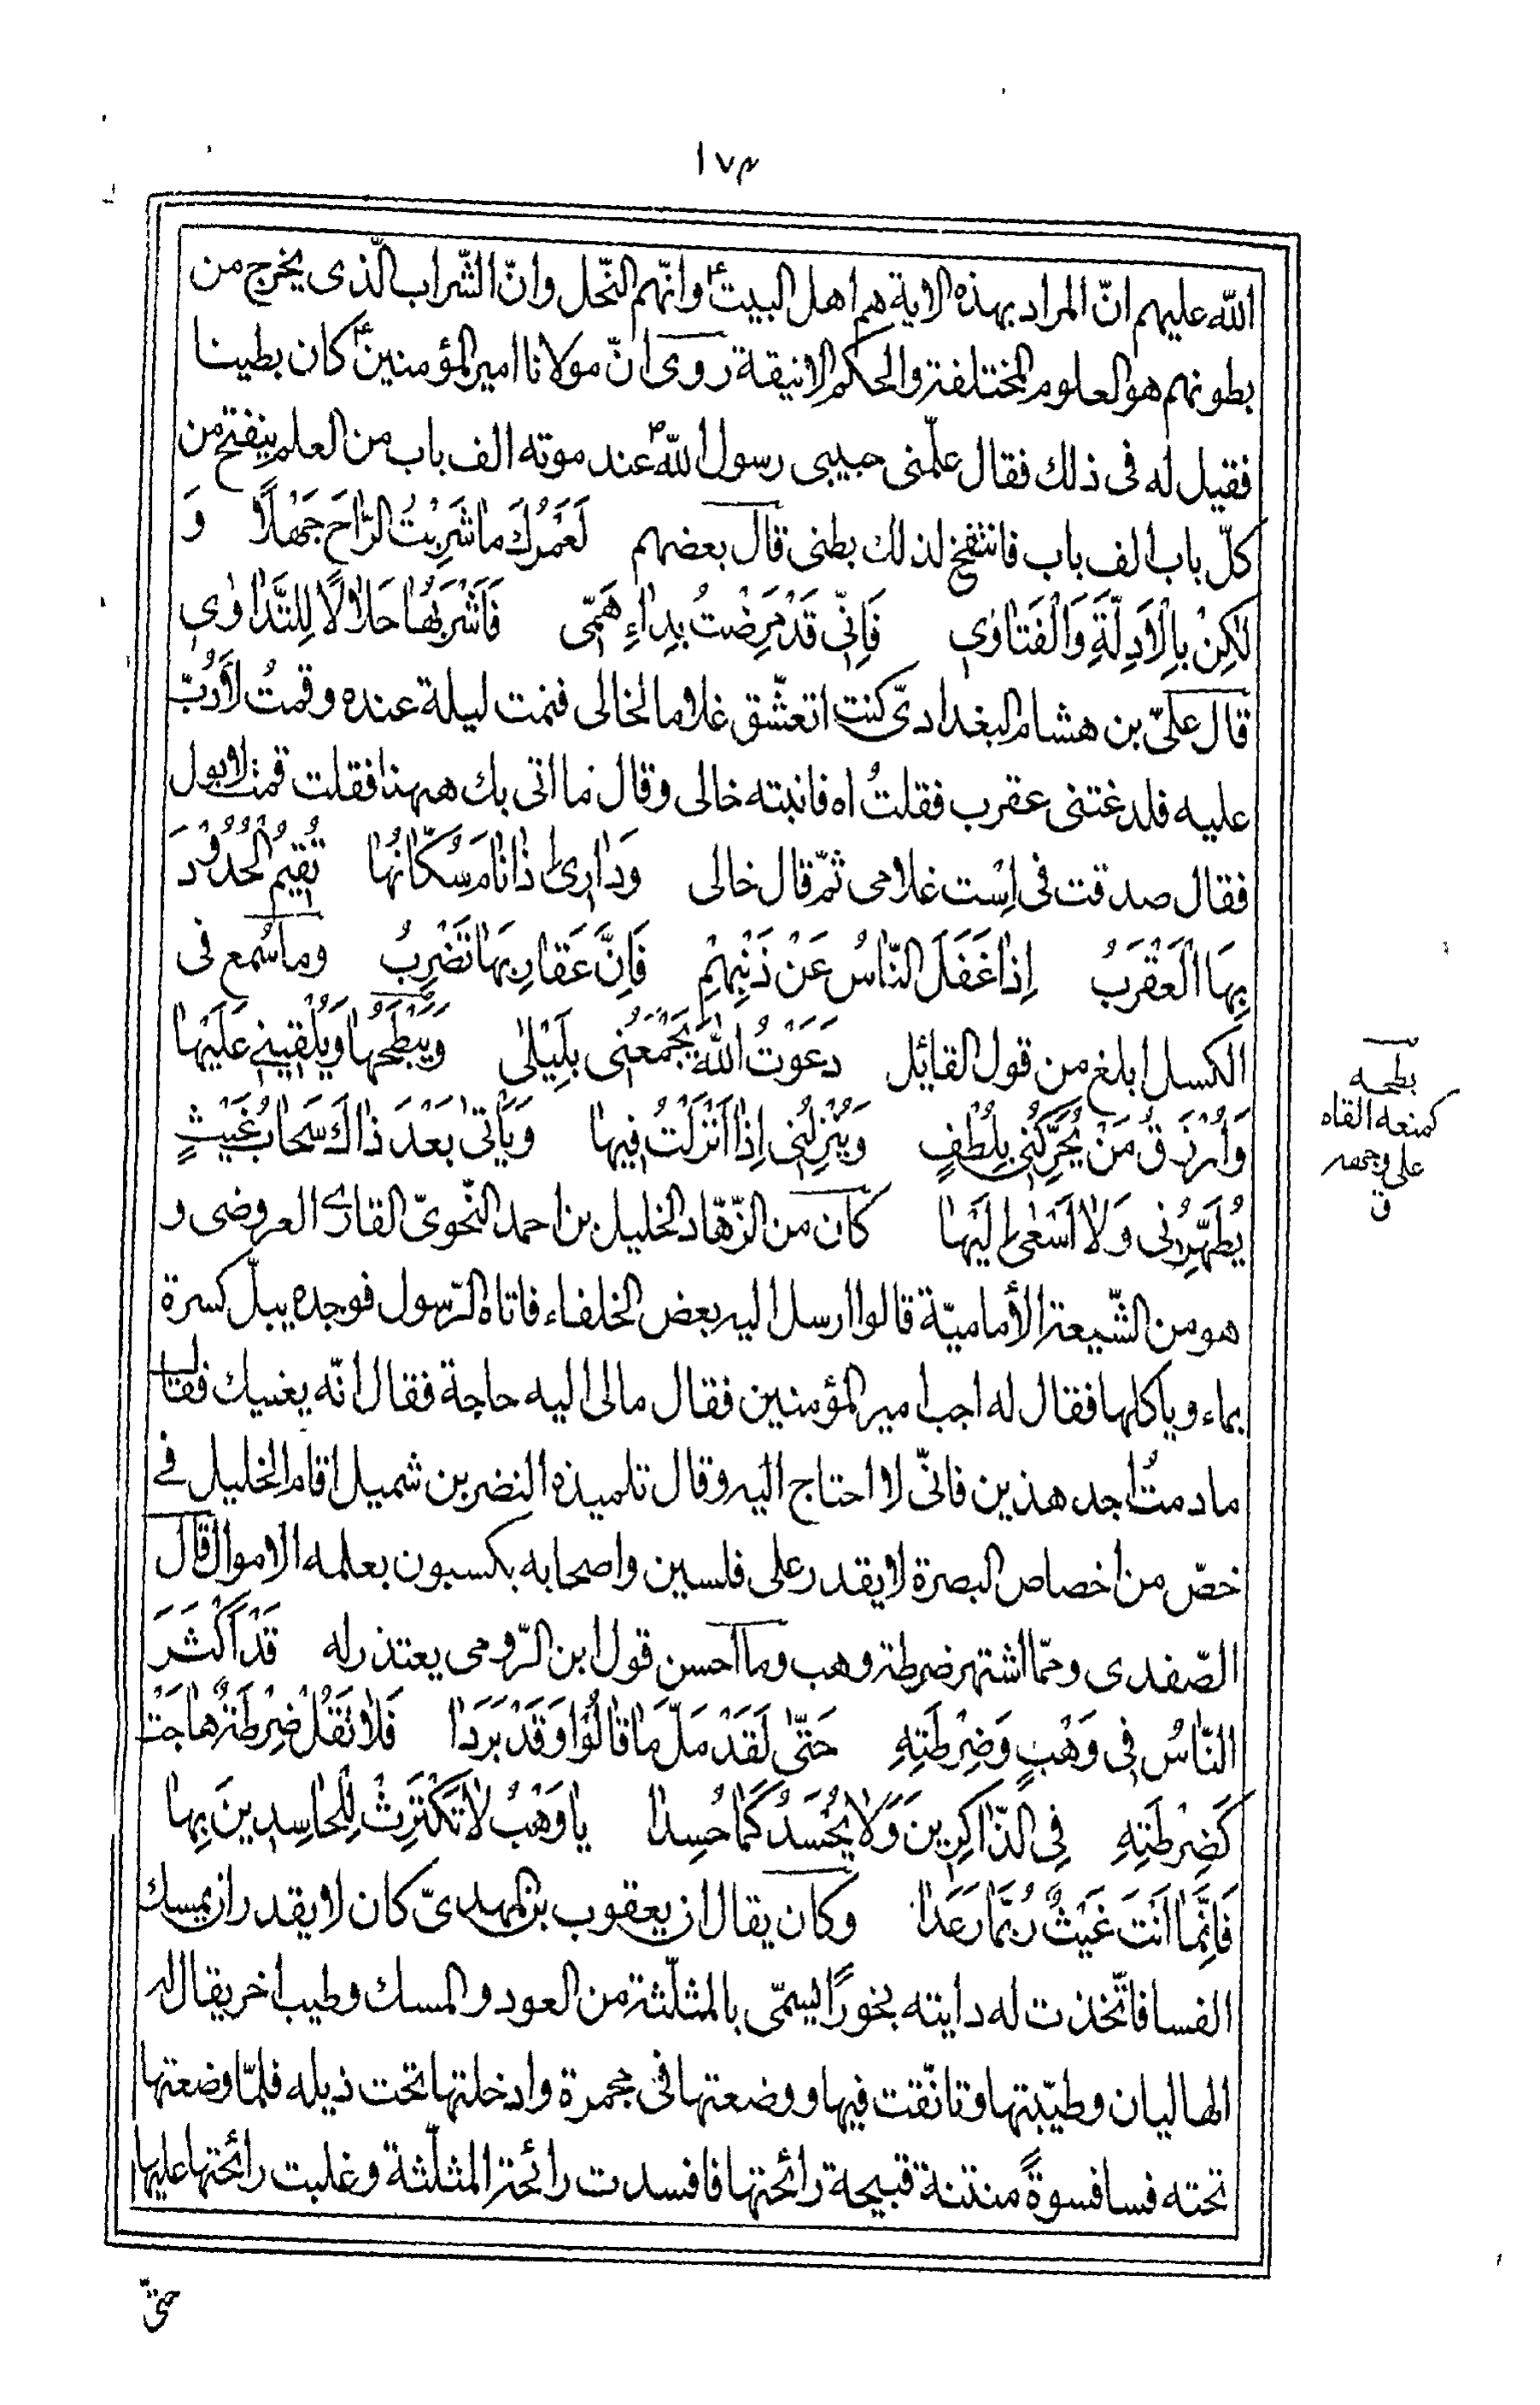 ١٧٣
الله عليهم انّ المراد بهذه الاية هم اهل البيتؑ وانّهم النّحل وانّ الشّراب الّذى يخرج من
بطونهم هو العلوم المختلفة والحكم الانيقة روى انّ مولانا امير المؤمنينؑ كان بطينا
فقيل له فى ذلك فقال علّمنى حبيبى رسول اللهؐ عند موته الف باب من العلم ينفتح من
كلّ باب الف باب فانتفخ لذلك بطنى قال بعضهم لَعَمْرُكَ ما شَرِبْتُ الرّاحَ جَهْلًا وَ
لٰكِنْ بِالْاَدِلَّةِ وَالْفَتاوٰى فَاِنّى قَدْ مَرِضْتُ بِداءِ هَمّى فَاَشْرَبُها حَلالًا لِلتَّداوٰى
قال علىّ بن هشام البغدادىّ كنت اتعشّق غلاما لخالى فنمت ليلة عنده وقمتُ لأدُبّ
عليه فلدغتنى عقرب فقلتُ اه فانبته خالى وقال ما اتى بك ههنا فقلت قمت لابول
فقال صدقت فى اِسْت غلامى ثمّ قال خالى وَدارى اِذا نامَ سُكّانُها تُقيمُ الْحُدُودَ
بِهَا الْعَقْرَبُ اِذا غَفَلَ النّاسُ عَنْ ذَنْبِهِمْ فَاِنَّ عَقارِبَها تَضْرِبُ وما سُمع فى
الكسل ابلغ من قول القائل دَعَوْتُ اللهَ يَجْمَعُنى بِلَيْلٰى وَيَبْطَحُها وَيُلْقينى عَلَيْها
وَاُرْزَقُ مَنْ يُحَرِّكُنى بِلُطْفٍ وَيُنْزِلُنى اِذا اَنْزَلْتُ فيها وَيَأتى بَعْدَ ذاكَ سَحابُ غَيْثٍ
يُطَهِّرُنى وَلا اَسْعٰى اِلَيْها كان من الزّهّاد الخليل بن احمد النّحوىّ القارى العروضى و
هو من الشّيعة الأماميّة قالوا ارسل اليه بعض الخلفاء فاتاه الرّسول فوجده يبلّ كسرة
بماء وياكلها فقال له اجب امير المؤمنين فقال مالى اليه حاجة فقال انّه يغنيك فقال
ما دمتُ اجد هذين فانّى لا احتاج اليه وقال تلميذه النضر بن شميل اقام الخليل فى
خصّ من اخصاص البصرة لا يقدر على فلسين واصحابه يكسبون بعلمه الاموال قال
الصّفدى وممّا اشتهر ضرطة وهب وما احسن قول ابن الرّومى يعتذر له قَدْ اَكْثَرَ
النّاسُ فى وَهْبٍ وَضِرْطَتِهِ حَتّى لَقَدْ مَلَّ ما قالُوا وَقَدْ بَرَدا فَلا تَقُلْ ضِرْطَةٌ هاجَتْ
كَضِرْطَتِهِ فِى الذّاكِرينَ وَلا يُحْسَدُ كَما حُسِدا يا وَهْبُ لا تَكْتَرِثْ لِلْحاسِدينَ بِها
فَاِنَّما اَنْتَ غَيْثٌ رُبَّما رَعَدا وكان يقال ان يعقوب بن المهدىّ كان لا يقدر ان يمسك
الفسا فاتّخذت له دايته بخورًا يسمّى بالمثلّثة من العود والمسك وطيب اخر يقال له
الهاليان وطيّبتها وتانّقت فيها ووضعتها فى مجمرة وادخلتها تحت ذيله فلمّا وضعتها
تحته فسا فسوةً منتنة قبيحة رائحتها فافسدت رائحة المثلّثة وغلبت رائحتها عليها
بطحه
كمنعه القاه
على وجهه
ق